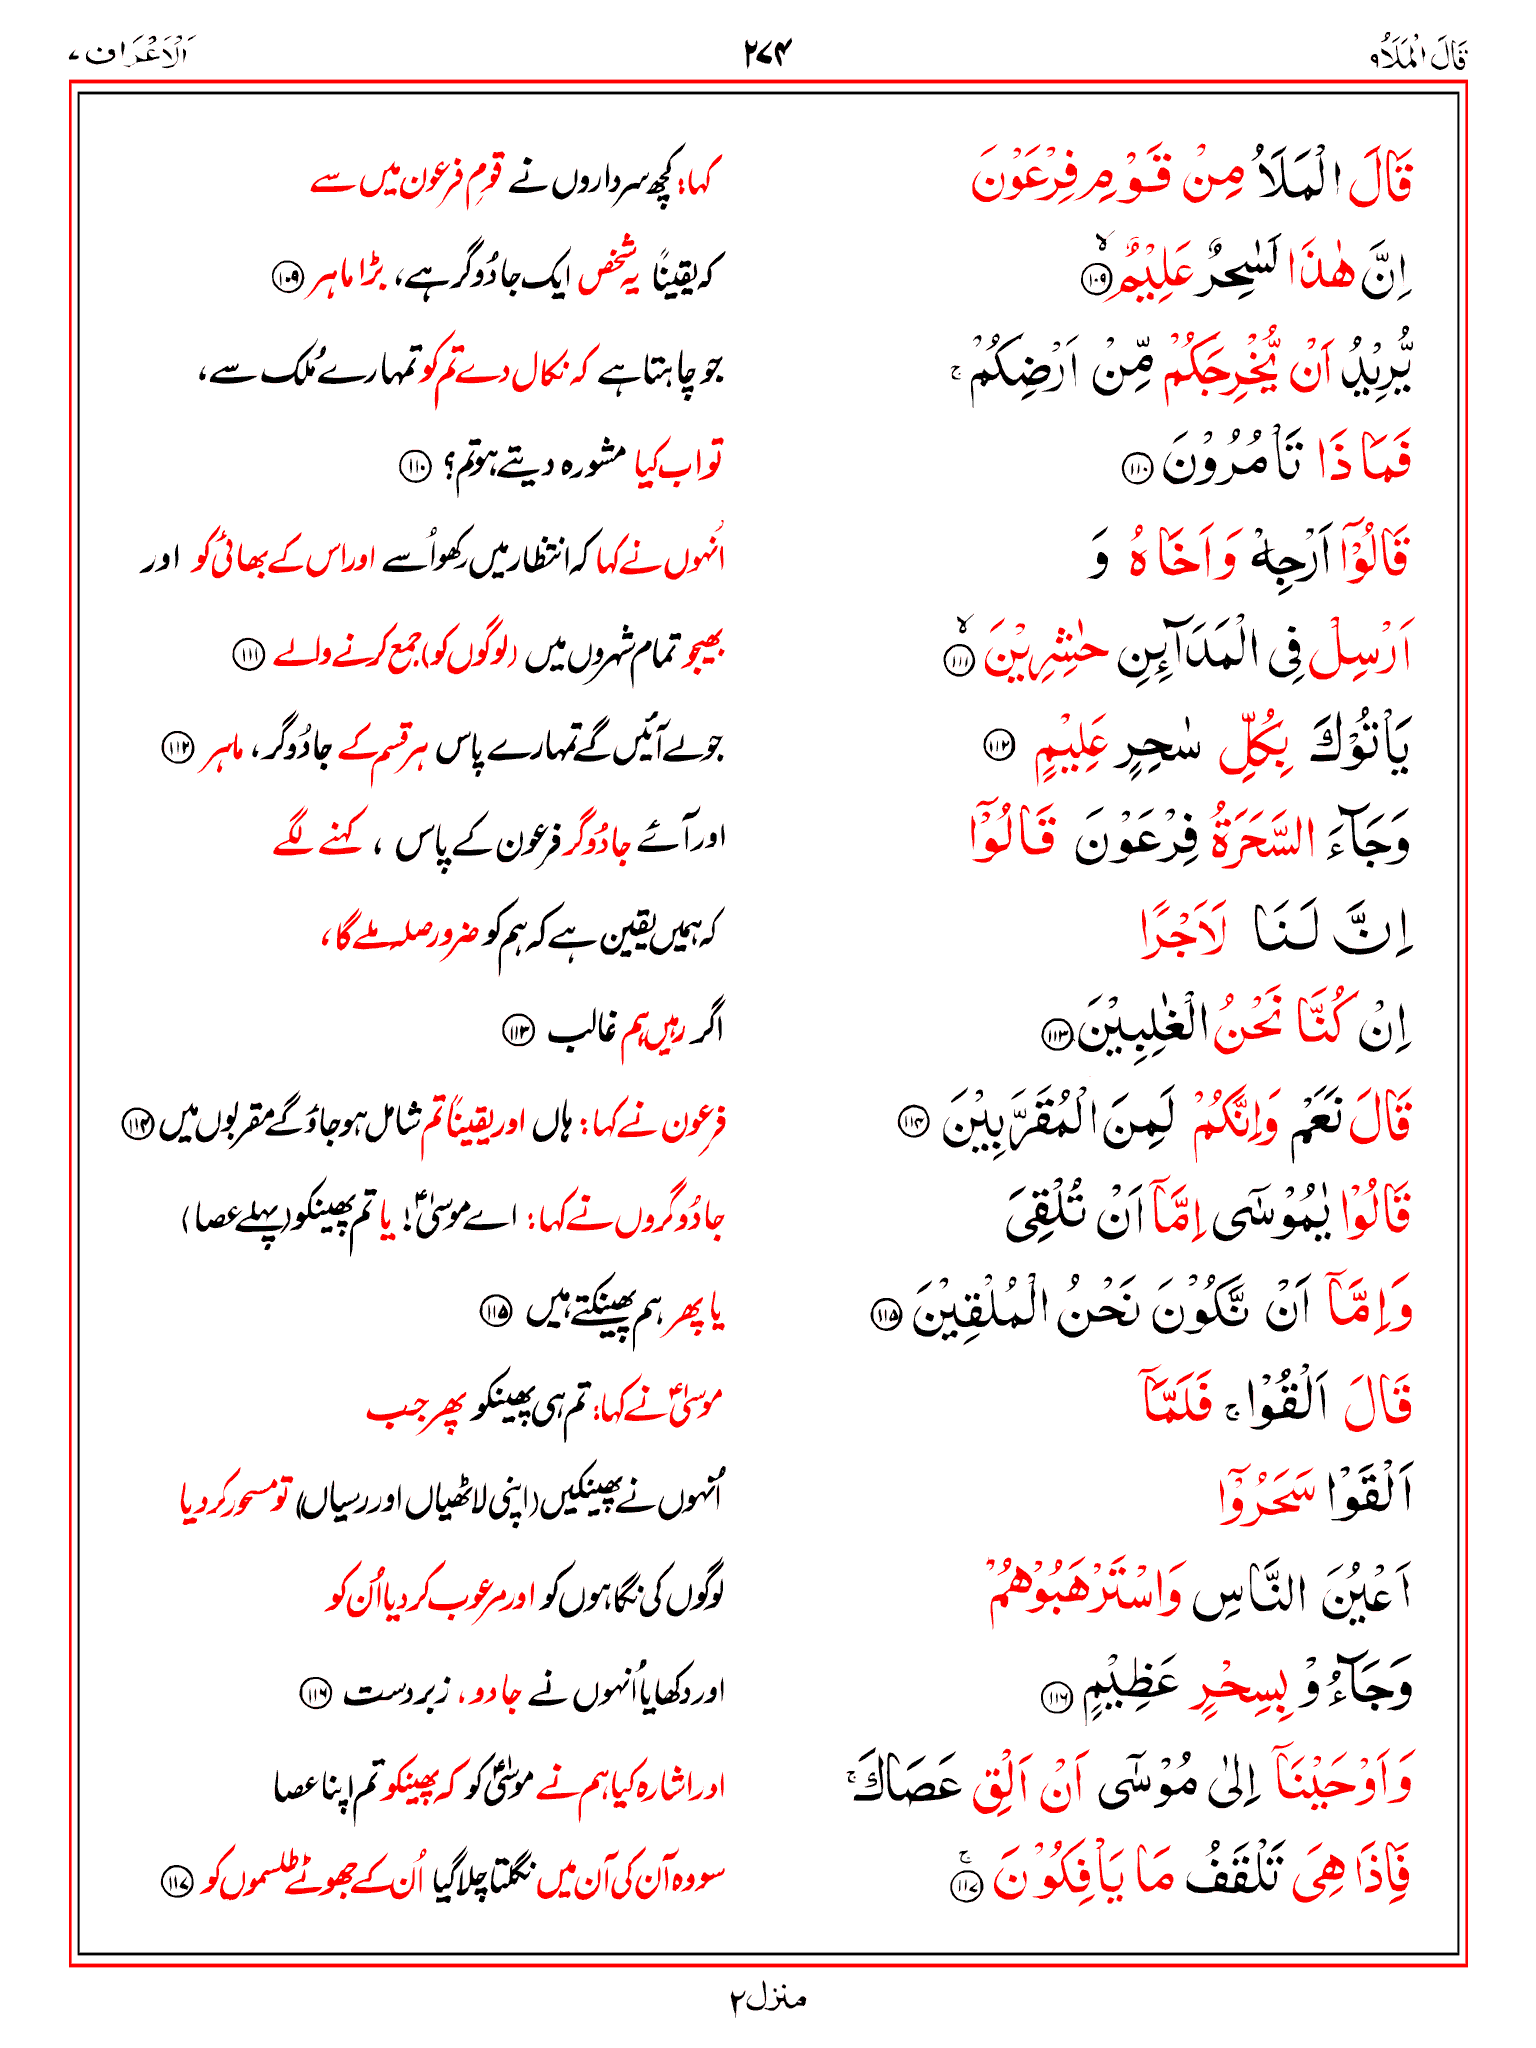 قَالَ الْمَلَاُ ٩ ٢٧٤ اَلْاَعْرَاف ٧
قَالَ الْمَلَاُ مِنْ قَوْمِ فِرْعَوْنَ کہا: کچھ سرداروں نے قومِ فرعون میں سے
اِنَّ هٰذَا لَسٰحِرٌ عَلِيْمٌ ۙ ﴿١٠٩﴾ کہ یقیناً یہ شخص ایک جادُوگر ہے، بڑا ماہر ﴿١٠٩﴾
يُّرِيْدُ اَنْ يُّخْرِجَكُمْ مِّنْ اَرْضِكُمْ ۚ جو چاہتا ہے کہ نکال دے تم کو تمہارے مُلک سے،
فَمَاذَا تَاْمُرُوْنَ ﴿١١٠﴾ تو اب کیا مشورہ دیتے ہو تم؟ ﴿١١٠﴾
قَالُوْٓا اَرْجِهْ وَاَخَاهُ وَ اُنہوں نے کہا کہ انتظار میں رکھو اُسے اور اس کے بھائی کو اور
اَرْسِلْ فِى الْمَدَآئِنِ حٰشِرِيْنَ ۙ ﴿١١١﴾ بھیجو تمام شہروں میں (لوگوں کو) جمع کرنے والے ﴿١١١﴾
يَاْتُوْكَ بِكُلِّ سٰحِرٍ عَلِيْمٍ ﴿١١٢﴾ جو لے آئیں گے تمہارے پاس ہر قسم کے جادُوگر، ماہر ﴿١١٢﴾
وَجَآءَ السَّحَرَةُ فِرْعَوْنَ قَالُوْٓا اور آئے جادُوگر فرعون کے پاس ، کہنے لگے
اِنَّ لَنَا لَاَجْرًا کہ ہمیں یقین ہے کہ ہم کو ضرور صلہ ملے گا،
اِنْ كُنَّا نَحْنُ الْغٰلِبِيْنَ ﴿١١٣﴾ اگر رہیں ہم غالب ﴿١١٣﴾
قَالَ نَعَمْ وَاِنَّكُمْ لَمِنَ الْمُقَرَّبِيْنَ ﴿١١٤﴾ فرعون نے کہا: ہاں اور یقیناً تم شامل ہو جاؤ گے مقربوں میں ﴿١١٤﴾
قَالُوْا يٰمُوْسٰٓى اِمَّآ اَنْ تُلْقِىَ جادُوگروں نے کہا: اے موسیٰؑ! یا تم پھینکو (پہلے عصا)
وَاِمَّآ اَنْ نَّكُوْنَ نَحْنُ الْمُلْقِيْنَ ﴿١١٥﴾ یا پھر ہم پھینکتے ہیں ﴿١١٥﴾
قَالَ اَلْقُوْا ۚ فَلَمَّآ موسیٰؑ نے کہا: تم ہی پھینکو پھر جب
اَلْقَوْا سَحَرُوْٓا اُنہوں نے پھینکیں (اپنی لاٹھیاں اور رسیاں) تو مسحور کر دیا
اَعْيُنَ النَّاسِ وَاسْتَرْهَبُوْهُمْ لوگوں کی نگاہوں کو اور مرعوب کر دیا اُن کو
وَجَآءُوْ بِسِحْرٍ عَظِيْمٍ ﴿١١٦﴾ اور دکھایا اُنہوں نے جادو، زبردست ﴿١١٦﴾
وَاَوْحَيْنَآ اِلٰى مُوْسٰٓى اَنْ اَلْقِ عَصَاكَ ۚ اور اشارہ کیا ہم نے موسیٰؑ کو کہ پھینکو تم اپنا عصا
فَاِذَا هِىَ تَلْقَفُ مَا يَاْفِكُوْنَ ۚ ﴿١١٧﴾ سو وہ آن کی آن میں نگلتا چلا گیا اُن کے جھوٹے طلسموں کو ﴿١١٧﴾
منزل ٢